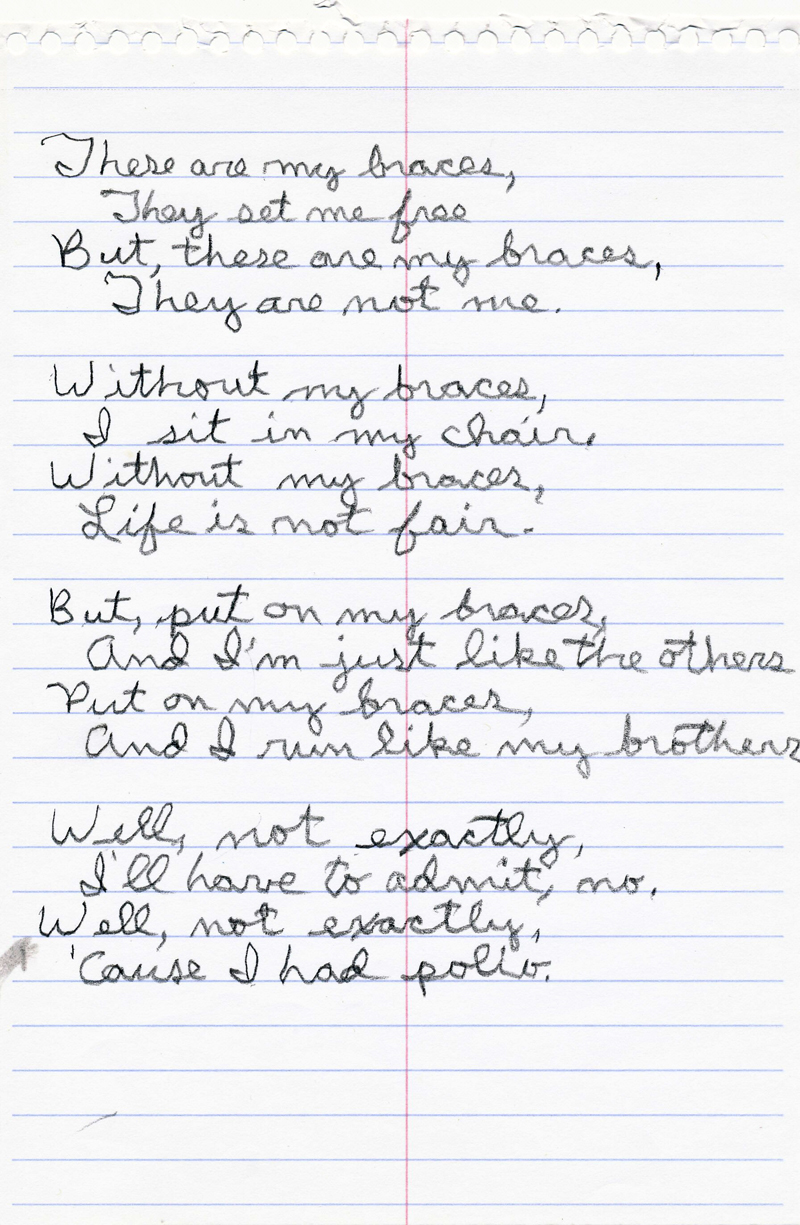 These are my braces,
They set me free
But, these are my braces,
They are not me.
Without my braces,
I sit in my chair.
Without my braces,
Life is not fair.
But, put on my braces,
And I'm just like the others
Put on my braces,
And I run like my brothers
Well, not exactly,
I'll have to admit, no.
Well, not exactly,
'Cause I had polio.